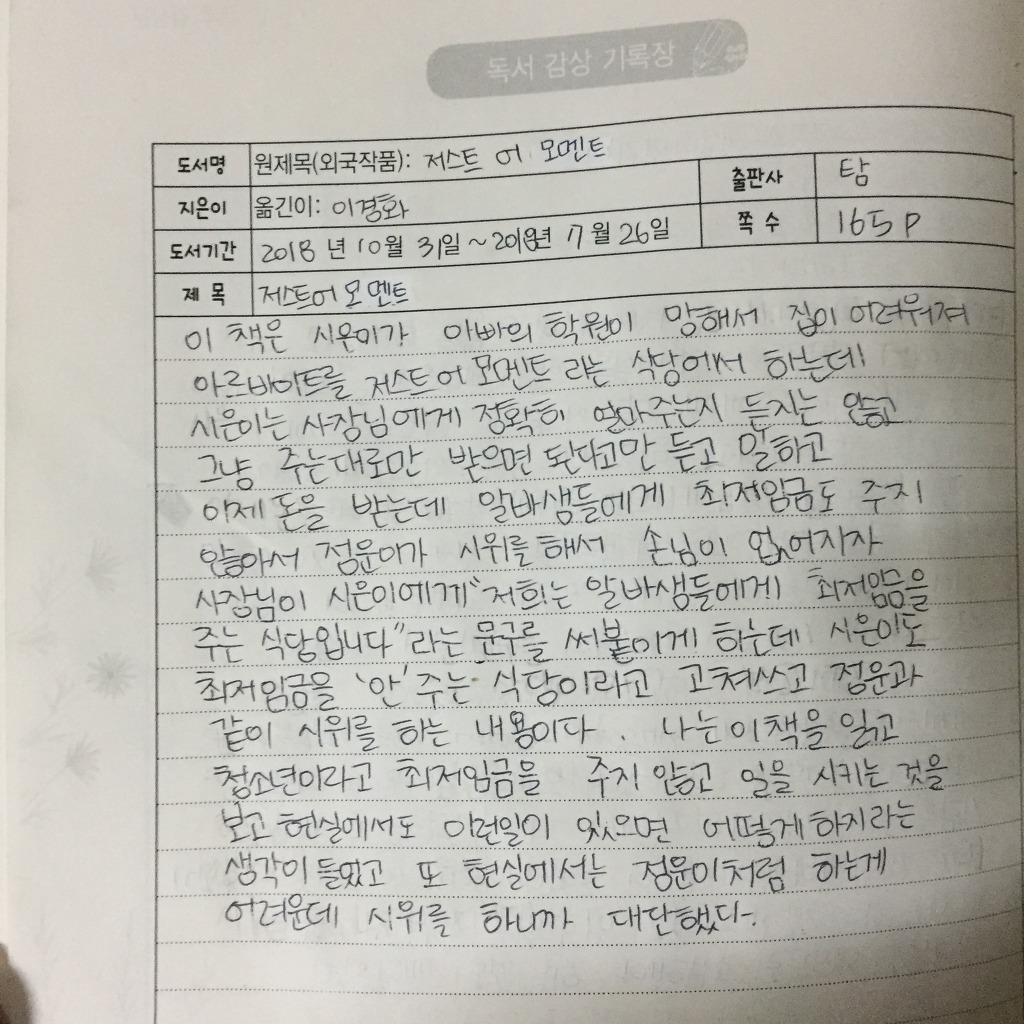 독서 감상 기록장
도서명 원제목(외국작품): 저스트 어 모멘트
출판사 탐
지은이 옮긴이: 이경화
쪽 수 165p
도서기간 2018 년 10월 31일 ~ 2018년 월 26일
제 목 저스트어 모멘트
이 책은 시은이가 아빠의 학원이 망해서 집이 어려워져
아르바이트를 저스트어 모멘트 라는 식당에서 하는데
시은이는 사장님에게 정확히 얼마주는지 듣지는 않고
그냥 주는대로만 받으면 된다고만 듣고 일하고
이제 돈을 받는데 알바생들에게 최저임금도 주지
않아서 정운이가 시위를 해서 손님이 없어지자
사장님이 시은이에게 "저희는 알바생들에게 최저임금을
주는 식당입니다"라는 문구를 써붙이게 하는데 시은이도
최저임금을 '안' 주는 식당이라고 고쳐쓰고 정운과
같이 시위를 하는 내용이다. 나는 이책을 읽고
청소년이라고 최저임금을 주지 않고 일을 시키는 것을
보고 현실에서도 이런일이 있으면 어떻게하지라는
생각이 들었고 또 현실에서는 정운이처럼 하는게
어려운데 시위를 하니까 대단했다.